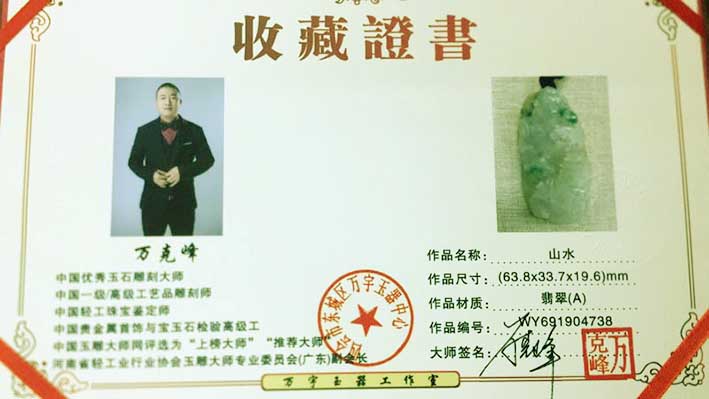 收藏證書
万克峰
中国优秀玉石雕刻大师
中国一级/高级工艺品雕刻师
中国轻工珠宝鉴定师
中国贵金属首饰与宝玉石检验高级工
中国玉雕大师网评选为“上榜大师”“推荐大师”
河南省轻工业行业协会玉雕大师专业委员会(广东)副会长
四会市东城区万字玉器中心
作品名称: 山水
作品尺寸: (63.8x33.7x19.6)mm
作品材质: 翡翠(A)
作品编号: WY691904738
大师签名: 万克峰
万克峰
万字玉器工作室